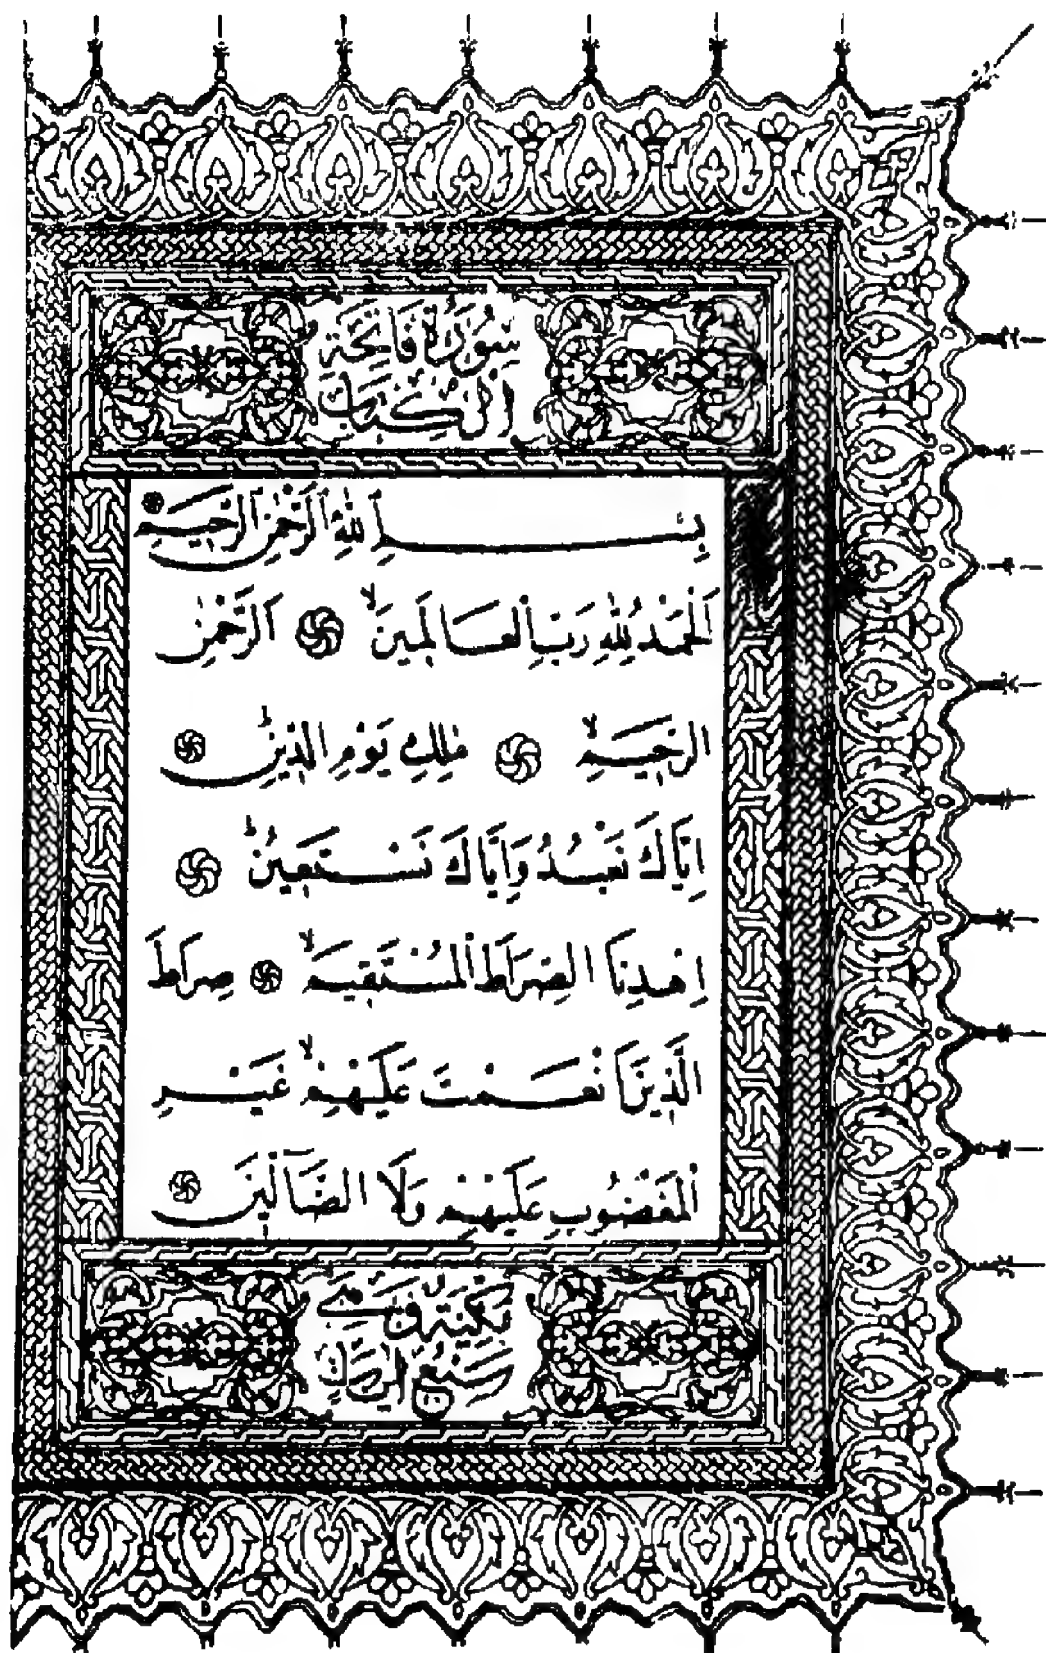 سُورَةُ فَاتِحَةِ
الْكِتَابِ
بِسْمِ اللّٰهِ الرَّحْمٰنِ الرَّحِيمِ
اَلْحَمْدُ لِلّٰهِ رَبِّ الْعَالَمِينَۙ اَلرَّحْمٰنِ
الرَّحِيمِۙ مٰلِكِ يَوْمِ الدِّينِۜ
اِيَّاكَ نَعْبُدُ وَاِيَّاكَ نَسْتَعِينُۜ
اِهْدِنَا الصِّرَاطَ الْمُسْتَقِيمَۙ صِرَاطَ
الَّذِينَ اَنْعَمْتَ عَلَيْهِمْۙ غَيْرِ
الْمَغْضُوبِ عَلَيْهِمْ وَلَا الضَّٓالِّينَ
مَكِّيَّةٌ وَهِيَ
سَبْعُ اٰيَاتٍ